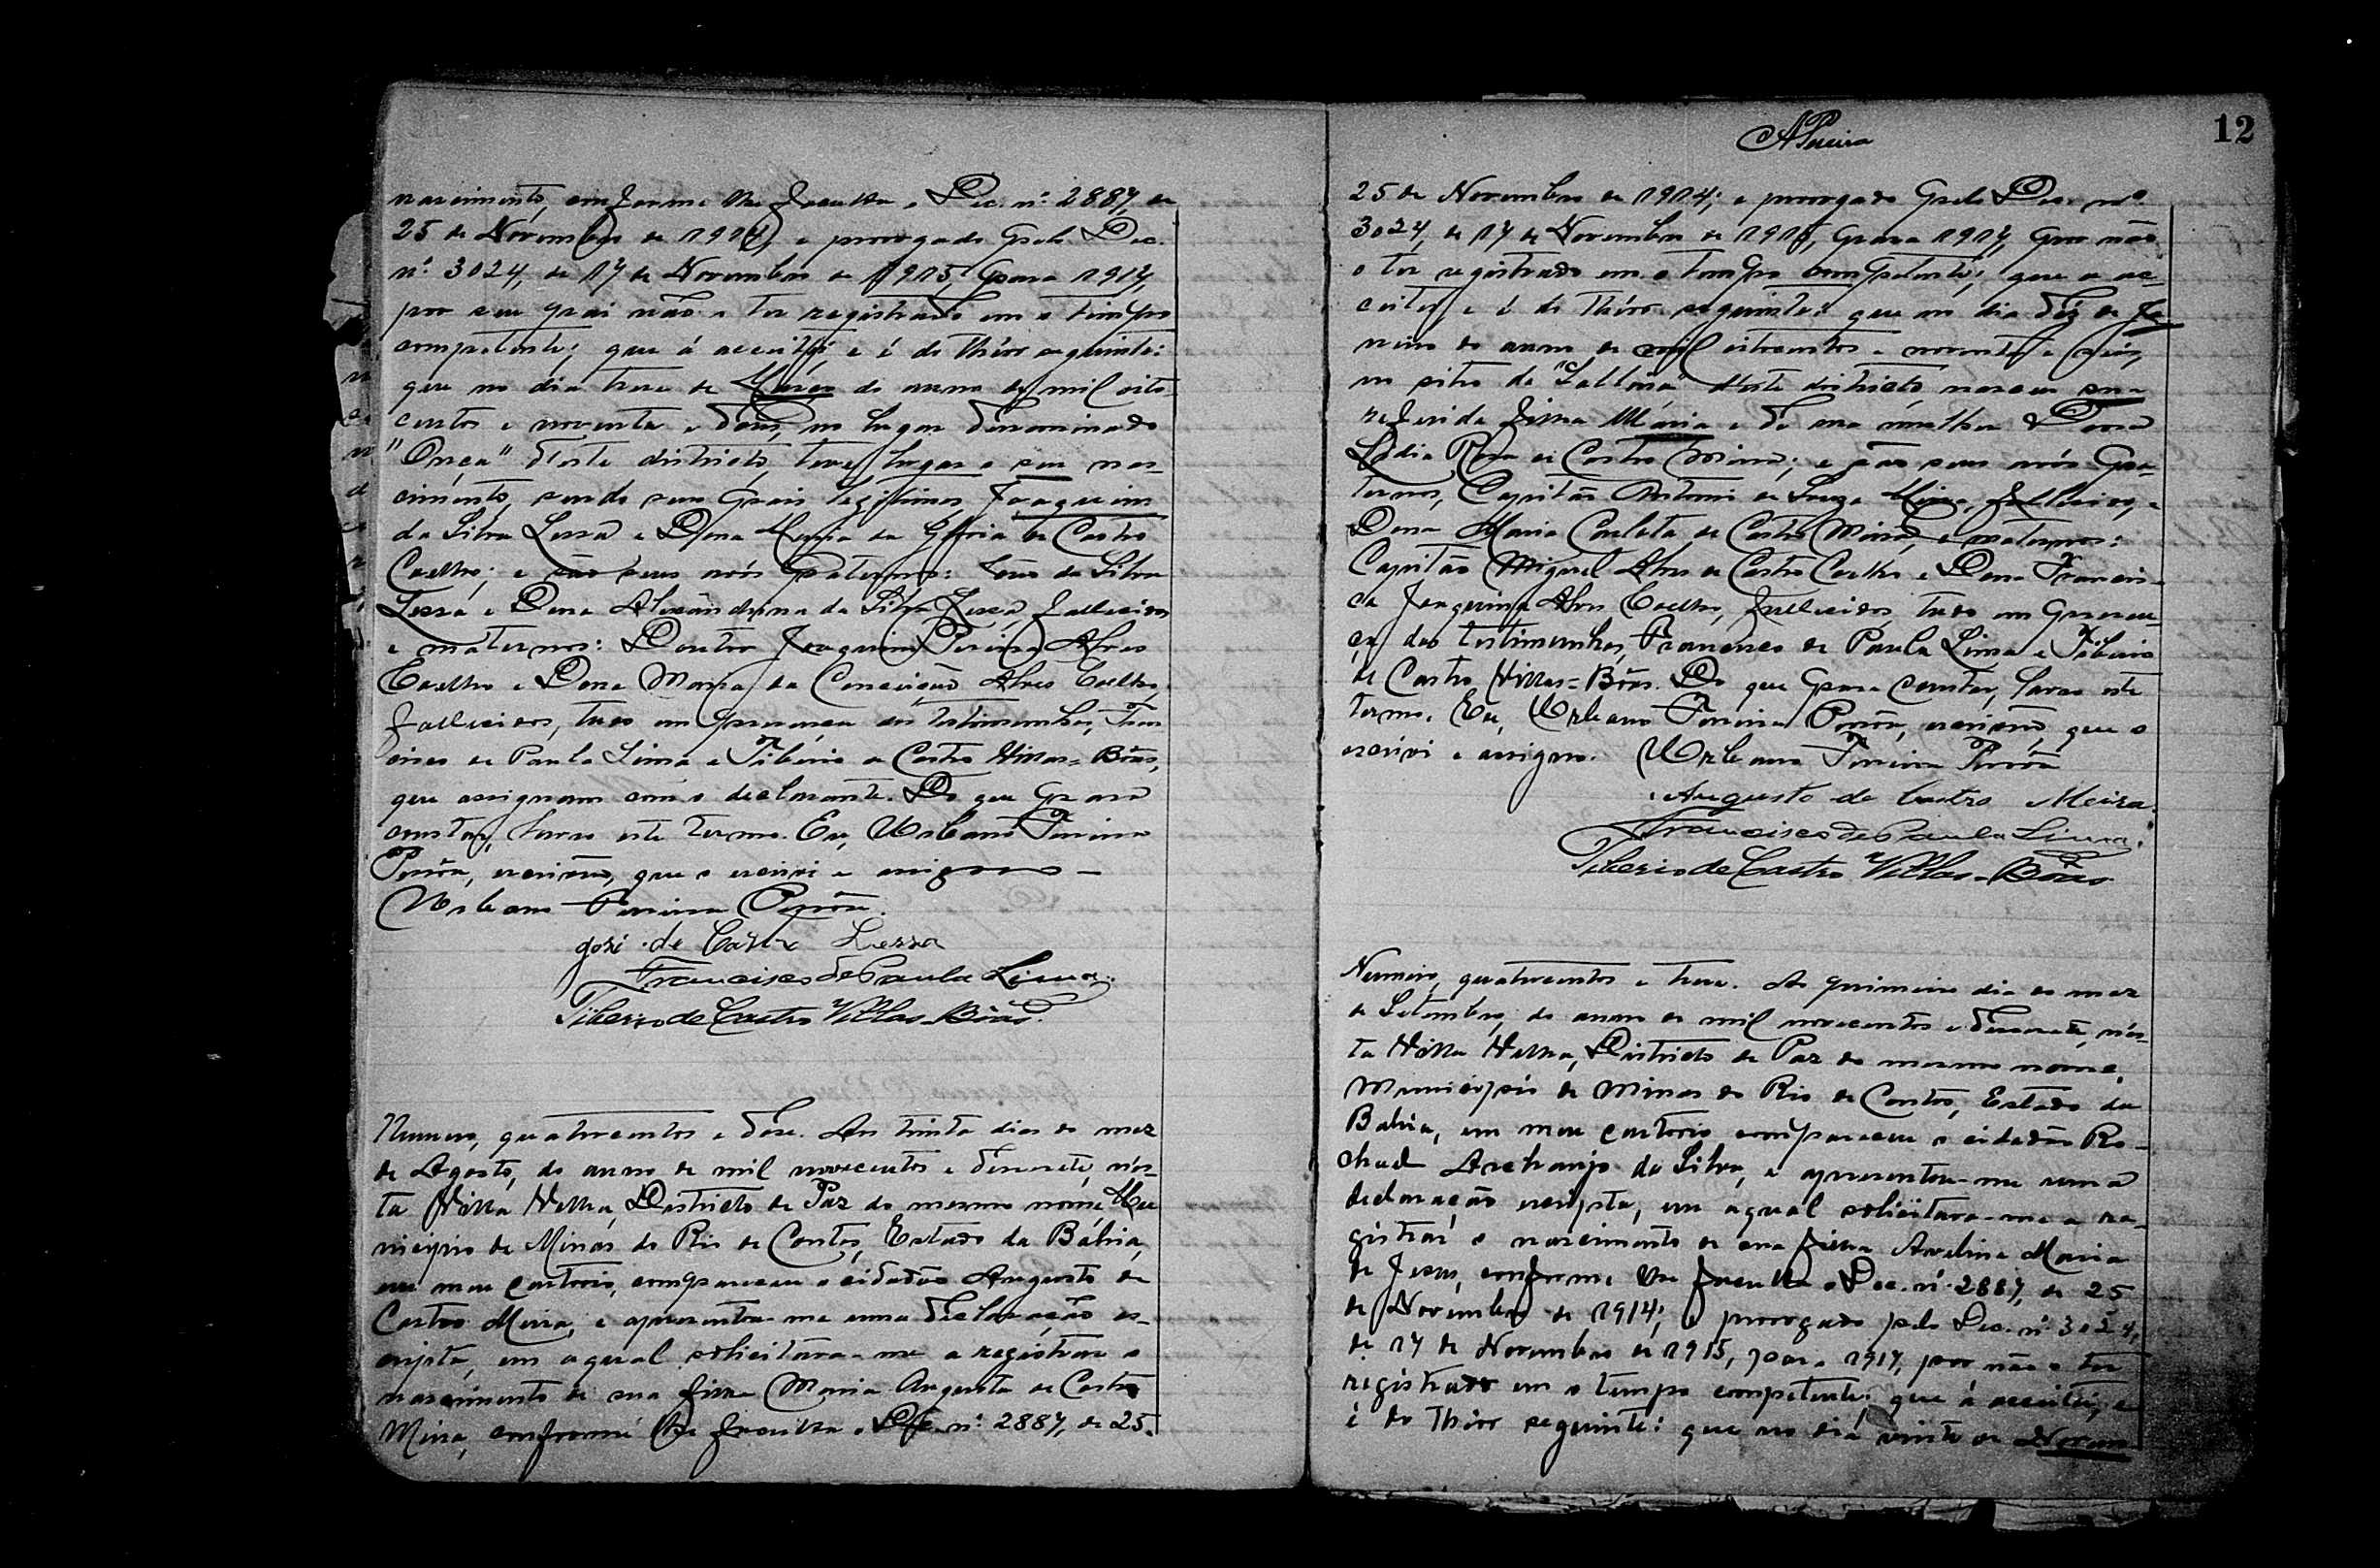 nascimento, conforme lhe faculta o Dec. nº 2887, de
25 de Novembro de 1914, e prorogado pelo Dec.
nº 3024, de 17 de Novembro de 1915, para 1917,
por seu pai não o ter registrado em o tempo
competente; que á acceitei e é do theor seguinte:
que no dia treze de Março do anno de mil oito
centos e noventa e dous, no lugar denominado
"Onça" d'este districto, teve lugar o seu nas-
cimento, sendo seus pais legitimos, Joaquim
da Silva Lessa e Dona Maria da Gloria de Castro
Coelho; e são seus avós paternos: da Silva
Lessa e Dona Alexandrina da Silva Lessa, fallecidos
e maternos: Doutor Joaquim Pereira Alves
Coelho e Dona Maria da Conceição Alves Coelho,
fallecidos, tudo em presença das testimunhas, Fran
cisco de Paula Lima e Tiberio de Castro Villas=Bôas,
que assignam com o declarante. Do que para
constar, lavro este termo. Eu, Urbano Pereira
escrivão, que o escrivi e assigno
Urbano Pereira
José de Castro Lessa
Francisco de Paula Lima.
Tiberio de Castro Villas-Bôas.
Numero, quatrocentos e dose. Aos trinta dias do mez
de Agosto, do anno de mil novecentos e desesete, n'es-
ta Villa Velha, Districto de Paz do mesmo nome, Mu
nicipio de Minas do Rio de Contas, Estado da Bahia,
em meu cartorio, compareceu o cidadão Augusto de
Castro Meira, e apresentou-me uma declaração es-
cripta, em a qual solicitara-me a registrar o
nascimento de sua filha Maria Augusta de Castro
Meira, conforme lhe faculta o Dec. nº 2887, de 25
12
APereira
25 de Novembro de 1914; e prorogado pelo Dec. nº
3024, de 17 de Novembro de 1915, para 1917, por não
o ter registrado em o tempo competente; que a ac-
ceitei e é do theor seguinte: que no dia dez de Ja
neiro do anno de mil oitocentos e noventa e seis,
no sitio da d'este districto, nasceu sua
referida filha Maria e de sua mulher Dona
Lidia Rosa de Castro Meira; e são seus avós pa-
ternos, Capitão Antonio de Souza Meira, fallecido, e
Dona Maria Carlota de Castro Meira, e maternos:
Capitão Miguel Alves de Castro Coelho e Dona Francis-
ca Joaquina Alves Coelho, fallecidos, tudo em presen-
ça das testimunhas, Francisco de Paula Lima e Tiberio
de Castro Villas=Bôas. Do que para constar, lavro este
termo. Eu, Urbano Pereira escrivão, que o
escrivi e assigno. Urbano Pereira
Augusto de Castro Meira.
Francisco de Paula Lima.
Tiberio de Castro Villas-Bôas
Numero, quatrocentos e treze. Ao primeiro dia do mez
de Setembro, do anno de mil novecentos e desesete, n'es-
ta Villa Velha, Districto de Paz do mesmo nome,
Municipio de Minas do Rio de Contas, Estado da
Bahia, em meu cartorio compareceu o cidadão Ra-
chael Archanjo da Silva, e apresentou-me uma
declaração escripta, em a qual solicitara-me a re-
gistrar o nascimento de sua filha Avelina Maria
de Jesus, conforme lhe faculta o Dec. nº 2887, de 25
de Novembro de 1914; e prorogado pelo Dec. nº 3024,
de 17 de Novembro de 1915, para 1917, por não o ter
registrado em o tempo competente; que á acceitei, e
é do theor seguinte: que no dia vinte de Novem